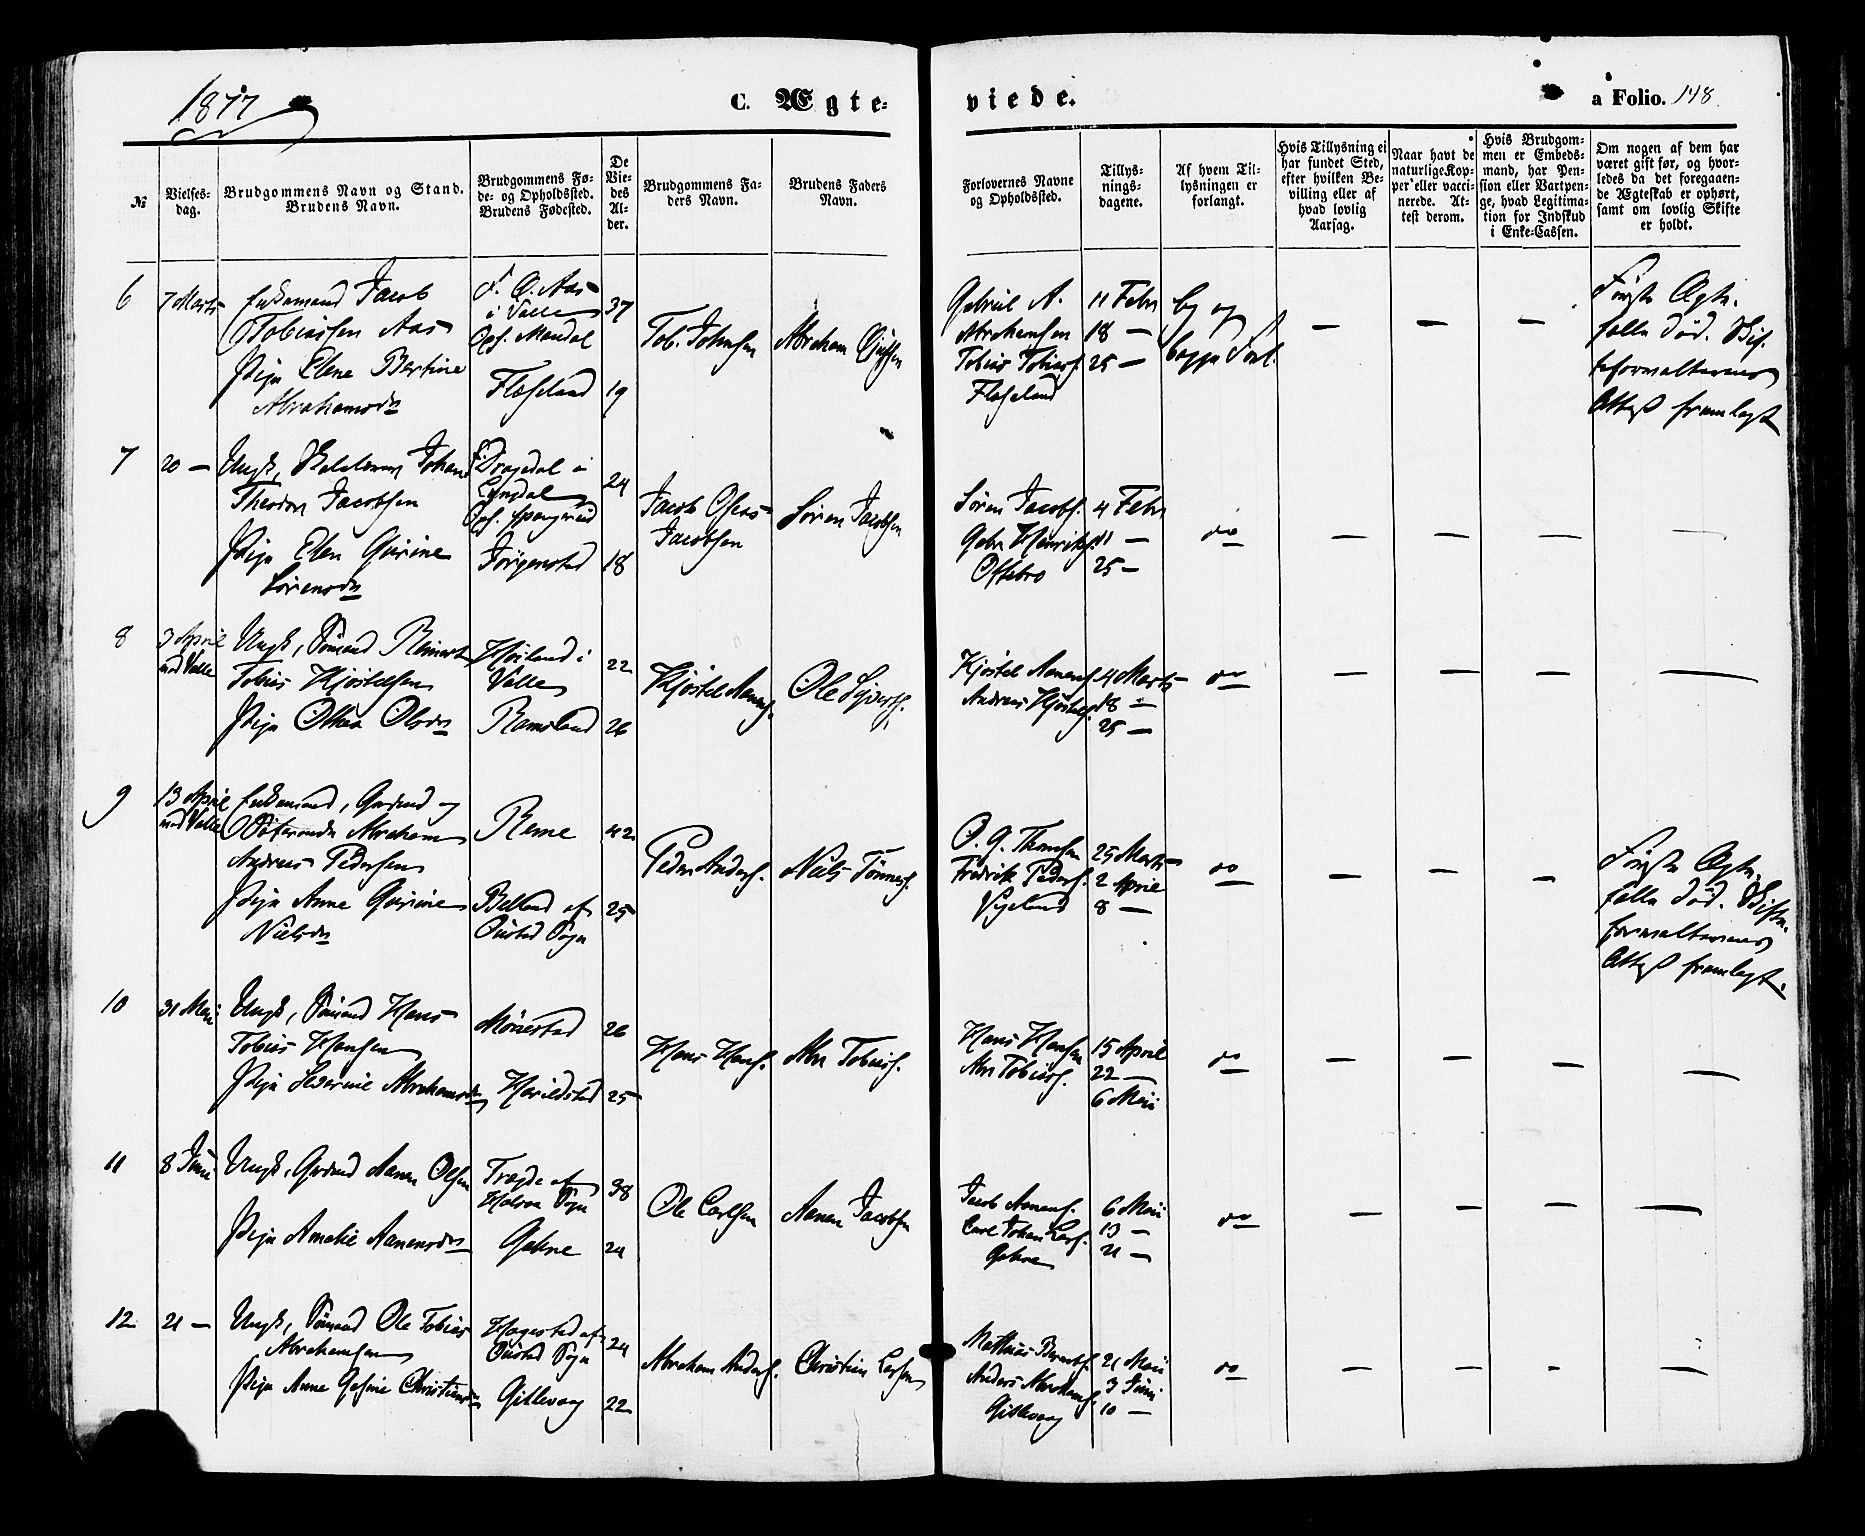 1877
C. Ægte-
viede.
a Folio. 148.
№
Vielses-
dag.
Brudgommens Navn og Stand.
Brudens Navn.
Brudgommens Fø-
de- og Opholdssted.
Brudens Fødested.
De
Vie-
des
Al-
der.
Brudgommens Fa-
ders Navn.
Brudens Faders
Navn.
Forlovernes Navne
og Opholdssted.
Tillys-
nings-
dagene.
Af hvem Til-
lysningen er
forlangt.
Hvis Tillysning ei
har fundet Sted,
efter hvilken Be-
villing eller af
hvad lovlig
Aarsag.
Naar havt de
naturlige Kop-
per eller vacci-
nerede. At-
test derom.
Hvis Brudgom-
men er Embeds-
mand, har Pen-
sion eller Vartpen-
ge, hvad Legitima-
tion for Indskud
i Enke-Cassen.
Om nogen af dem har
været gift før, og hvor-
ledes da det foregaaen-
de Ægteskab er ophørt,
samt om lovlig Skifte
er holdt.
6
7 Marts
Enkemand Jacob
Tobiassen Aas
Pige Elene Bertine
Abrahamsdr
F. O. Aas
i Valle
Oph. Mandal
Fladseland
37
19
Tob. Johnsen
Abraham
Gabriel A.
Abrahamsen
Tobias Tobiass.
Fladseland
11 Febr
18 —
25 —
begge Forl.
— — —
Første Ægte-
fælle død. Skif-
teforvalterens
Attest fremlagt
7
20 —
Ungk, Johan
Theodor Jacobsen
Pige Elen Gurine
Sørensdr
F. Dragedal i
Lyngdal
Oph. Spangereid
Jørgenstad
24
18
Jacob Olaus
Jacobsen
Søren Jacobsen
Søren Jacobs.
Gabr Henriks.
Oftebro
4 Febr
11 —
25 —
do
— — — —
8
3 April
ved Valle
Ungk, Sømand Reinert
Tobias Kjøstelsen
Pige Othea Olsdr
Høiland i
Valle
Ramsland
22
26
Kjøstel Aanens.
Ole Syverts.
Kjøstel Aanens.
Andreas Kjøstels.
4 Marts
18 —
25 —
do
— — — —
9
13 April
ved Valle
Enkemand, Gaardmd og
Søfarende Abraham
Andreas Pedersen
Pige Anne Gurine
Nielsdr
Reme
Belland af
Øisted Sogn
42
25
Peder Anders.
Niels Tønnes.
O. G. Thomsen
Fredrik Peders.
Vigeland
25 Marts
2 April
8 —
do
— — —
Første Ægte-
fælle død. Skifte-
forvalterens
Attest fremlagt.
10
31 Mai
Ungk, Sømand Hans
Tobias Hansen
Pige Severine Abrahamsdr
Mønestad
Harildstad
26
25
Hans Hans.
Abr Tobias.
Hans Hansen
Abr Tobias.
15 April
22 —
6 Mai
do
— — — —
11
8 Juni
Ungk, Gaardmd Aanen Olsen
Pige Amalie Aanensdr
Tregde af
Halsaa Sogn
Gahre
38
24
Ole Carlsen
Aanen Jacobsen
Jacob Aanens.
Carl Johan Lars.
Gahre
6 Mai
13 —
21 —
do
— — — —
12
21 —
Ungk, Sømand Ole Tobias
Abrahamsen
Pige Anne Gesine Christiansdr
Hagestad af
Øisted Sogn
Gitlevaag
24
22
Abraham Anders.
Christian Larsen
Mathias Berents.
Anders Abrahams.
Gitlevaag
21 Mai
3 Juni
10 —
do
— — — —